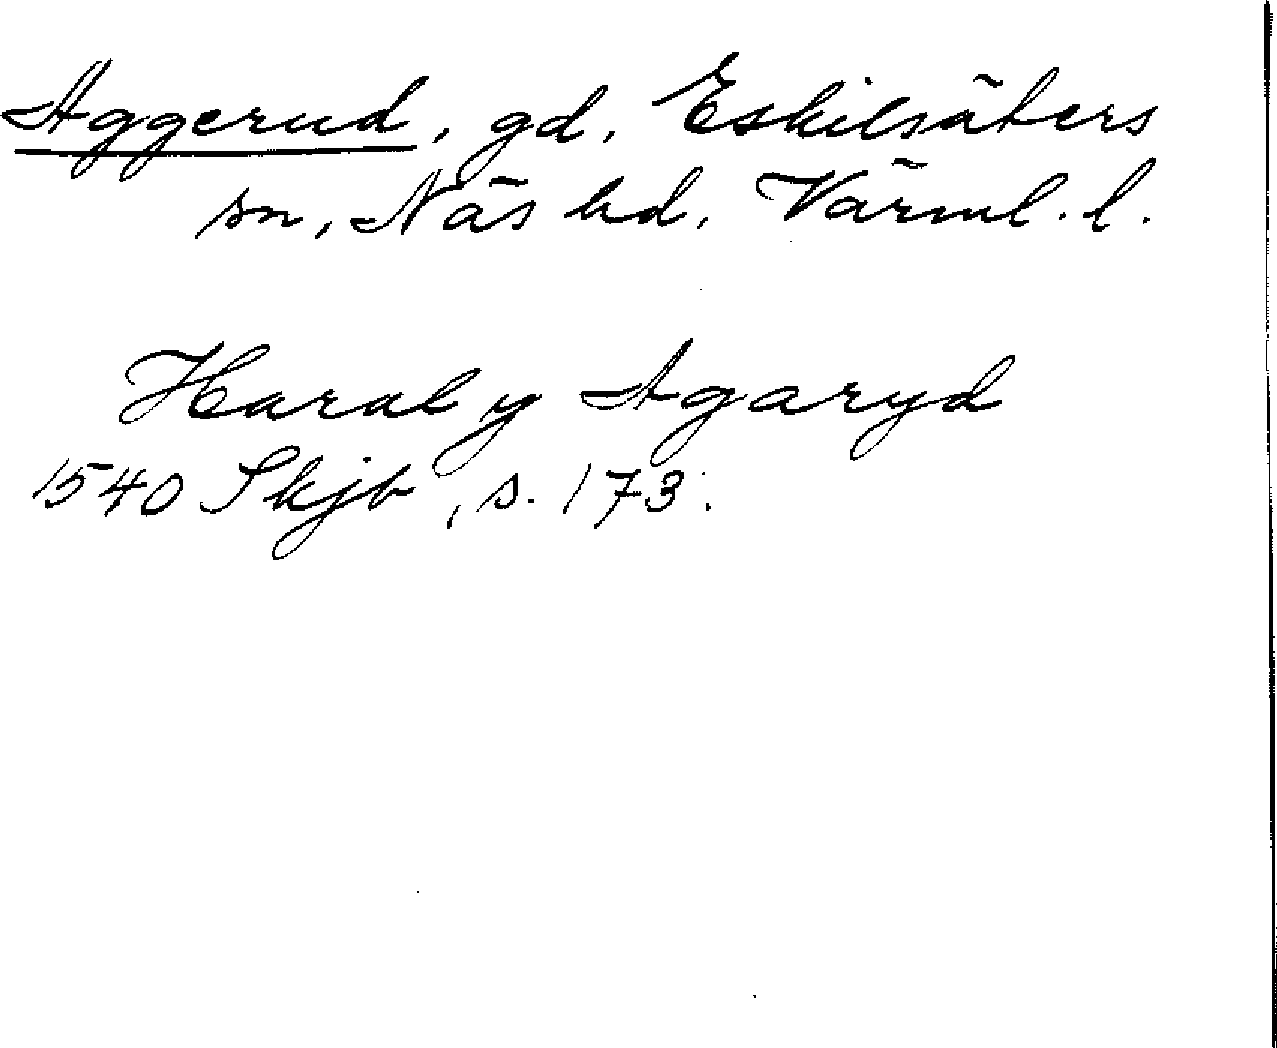 Aggerud, gd, Eskilsäters
sn, Näs hd, Värml. l.
Haral y Agaryd
1540 Skjb, s. 173.